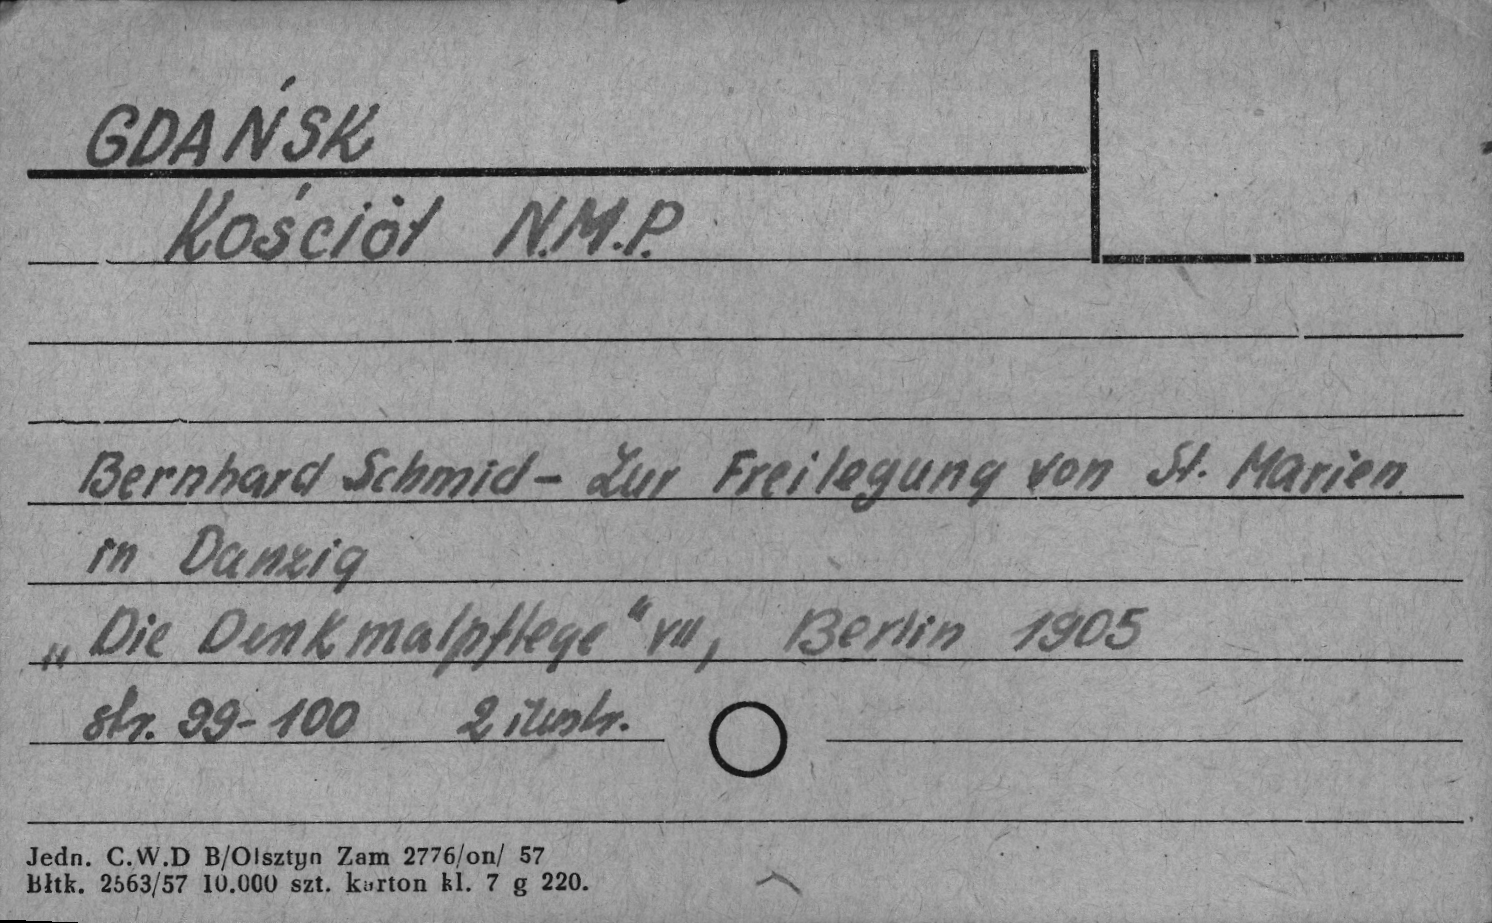 GDAŃSK
Kościół N.M.P.
Bernhard Schmid - Zur Freilegung von St. Marien
in Danzig
„Die Denkmalpflege" VII, Berlin 1905
str. 99-100 2 ilustr.
Jedn. C.W.D B/Olsztyn Zam 2776/on/ 57
Błtk. 2563/57 10.000 szt. karton kl. 7 g 220.